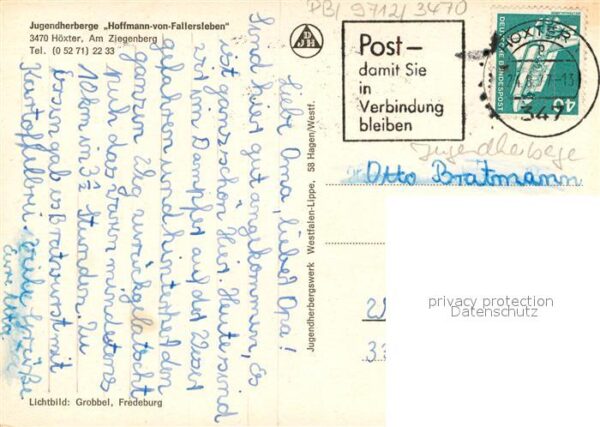 Jugendherberge „Hoffmann-von-Fallersleben"
3470 Höxter, Am Ziegenberg
Tel. (0 52 71) 22 33
PB/ 9712/3470
Liebe Oma, lieber Opa!
Sind hier gut angekommen, Es
ist ganz schön hier. Heute sind
wir im Dampfer auf der Weser
gefahren und hinterher den
ganzen Weg zurückgelatscht
Puh das waren mindestens
10 km in 3½ Stunden. Zu
Essen gab es Bratwurst mit
Kartoffelbrei. Viele Grüße
Eure
Lichtbild: Grobbel, Fredeburg
Jugendherbergswerk Westfalen-Lippe, 58 Hagen/Westf.
DJH
Post–
damit Sie
in
Verbindung
bleiben
HÖXTER
349
DEUTSCHE BUNDESPOST
40
Jugendherberge
Otto Bratmann
privacy protection
Datenschutz